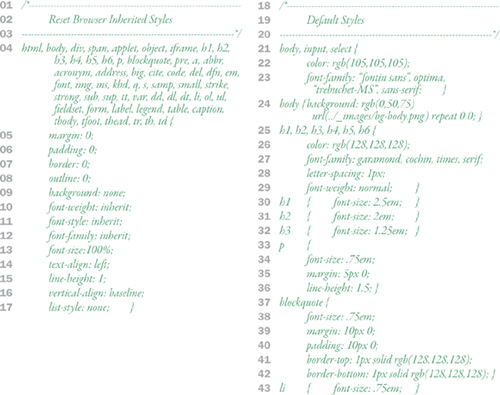 01 /*-----------------------------------------------------
02 Reset Browser Inherited Styles
03 -----------------------------------------------------*/
04 html, body, div, span, applet, object, iframe, h1, h2,
h3, h4, h5, h6, p, blockquote, pre, a, abbr,
acronym, address, big, cite, code, del, dfn, em,
font, img, ins, kbd, q, s, samp, small, strike,
strong, sub, sup, tt, var, dd, dl, dt, li, ol, ul,
fieldset, form, label, legend, table, caption,
tbody, tfoot, thead, tr, th, td {
05 margin: 0;
06 padding: 0;
07 border: 0;
08 outline: 0;
09 background: none;
10 font-weight: inherit;
11 font-style: inherit;
12 font-family: inherit;
13 font-size:100%;
14 text-align: left;
15 line-height: 1;
16 vertical-align: baseline;
17 list-style: none; }
18 /*-----------------------------------------------------
19 Default Styles
20 -----------------------------------------------------*/
21 body, input, select {
22 color: rgb(105,105,105);
23 font-family: “fontin sans”, optima,
“trebuchet-MS”, sans-serif; }
24 body { background: rgb(0,50,75)
url(../_images/bg-body.png) repeat 0 0; }
25 h1, h2, h3, h4, h5, h6 {
26 color: rgb(128,128,128);
27 font-family: garamond, cochin, times, serif;
28 letter-spacing: 1px;
29 font-weight: normal; }
30 h1 { font-size: 2.5em; }
31 h2 { font-size: 2em; }
32 h3 { font-size: 1.25em; }
33 p {
34 font-size: .75em;
35 margin: 5px 0;
36 line-height: 1.5; }
37 blockquote {
38 font-size: .75em;
39 margin: 10px 0;
40 padding: 10px 0;
41 border-top: 1px solid rgb(128,128,128);
42 border-bottom: 1px solid rgb(128,128,128); }
43 li { font-size: .75em; }